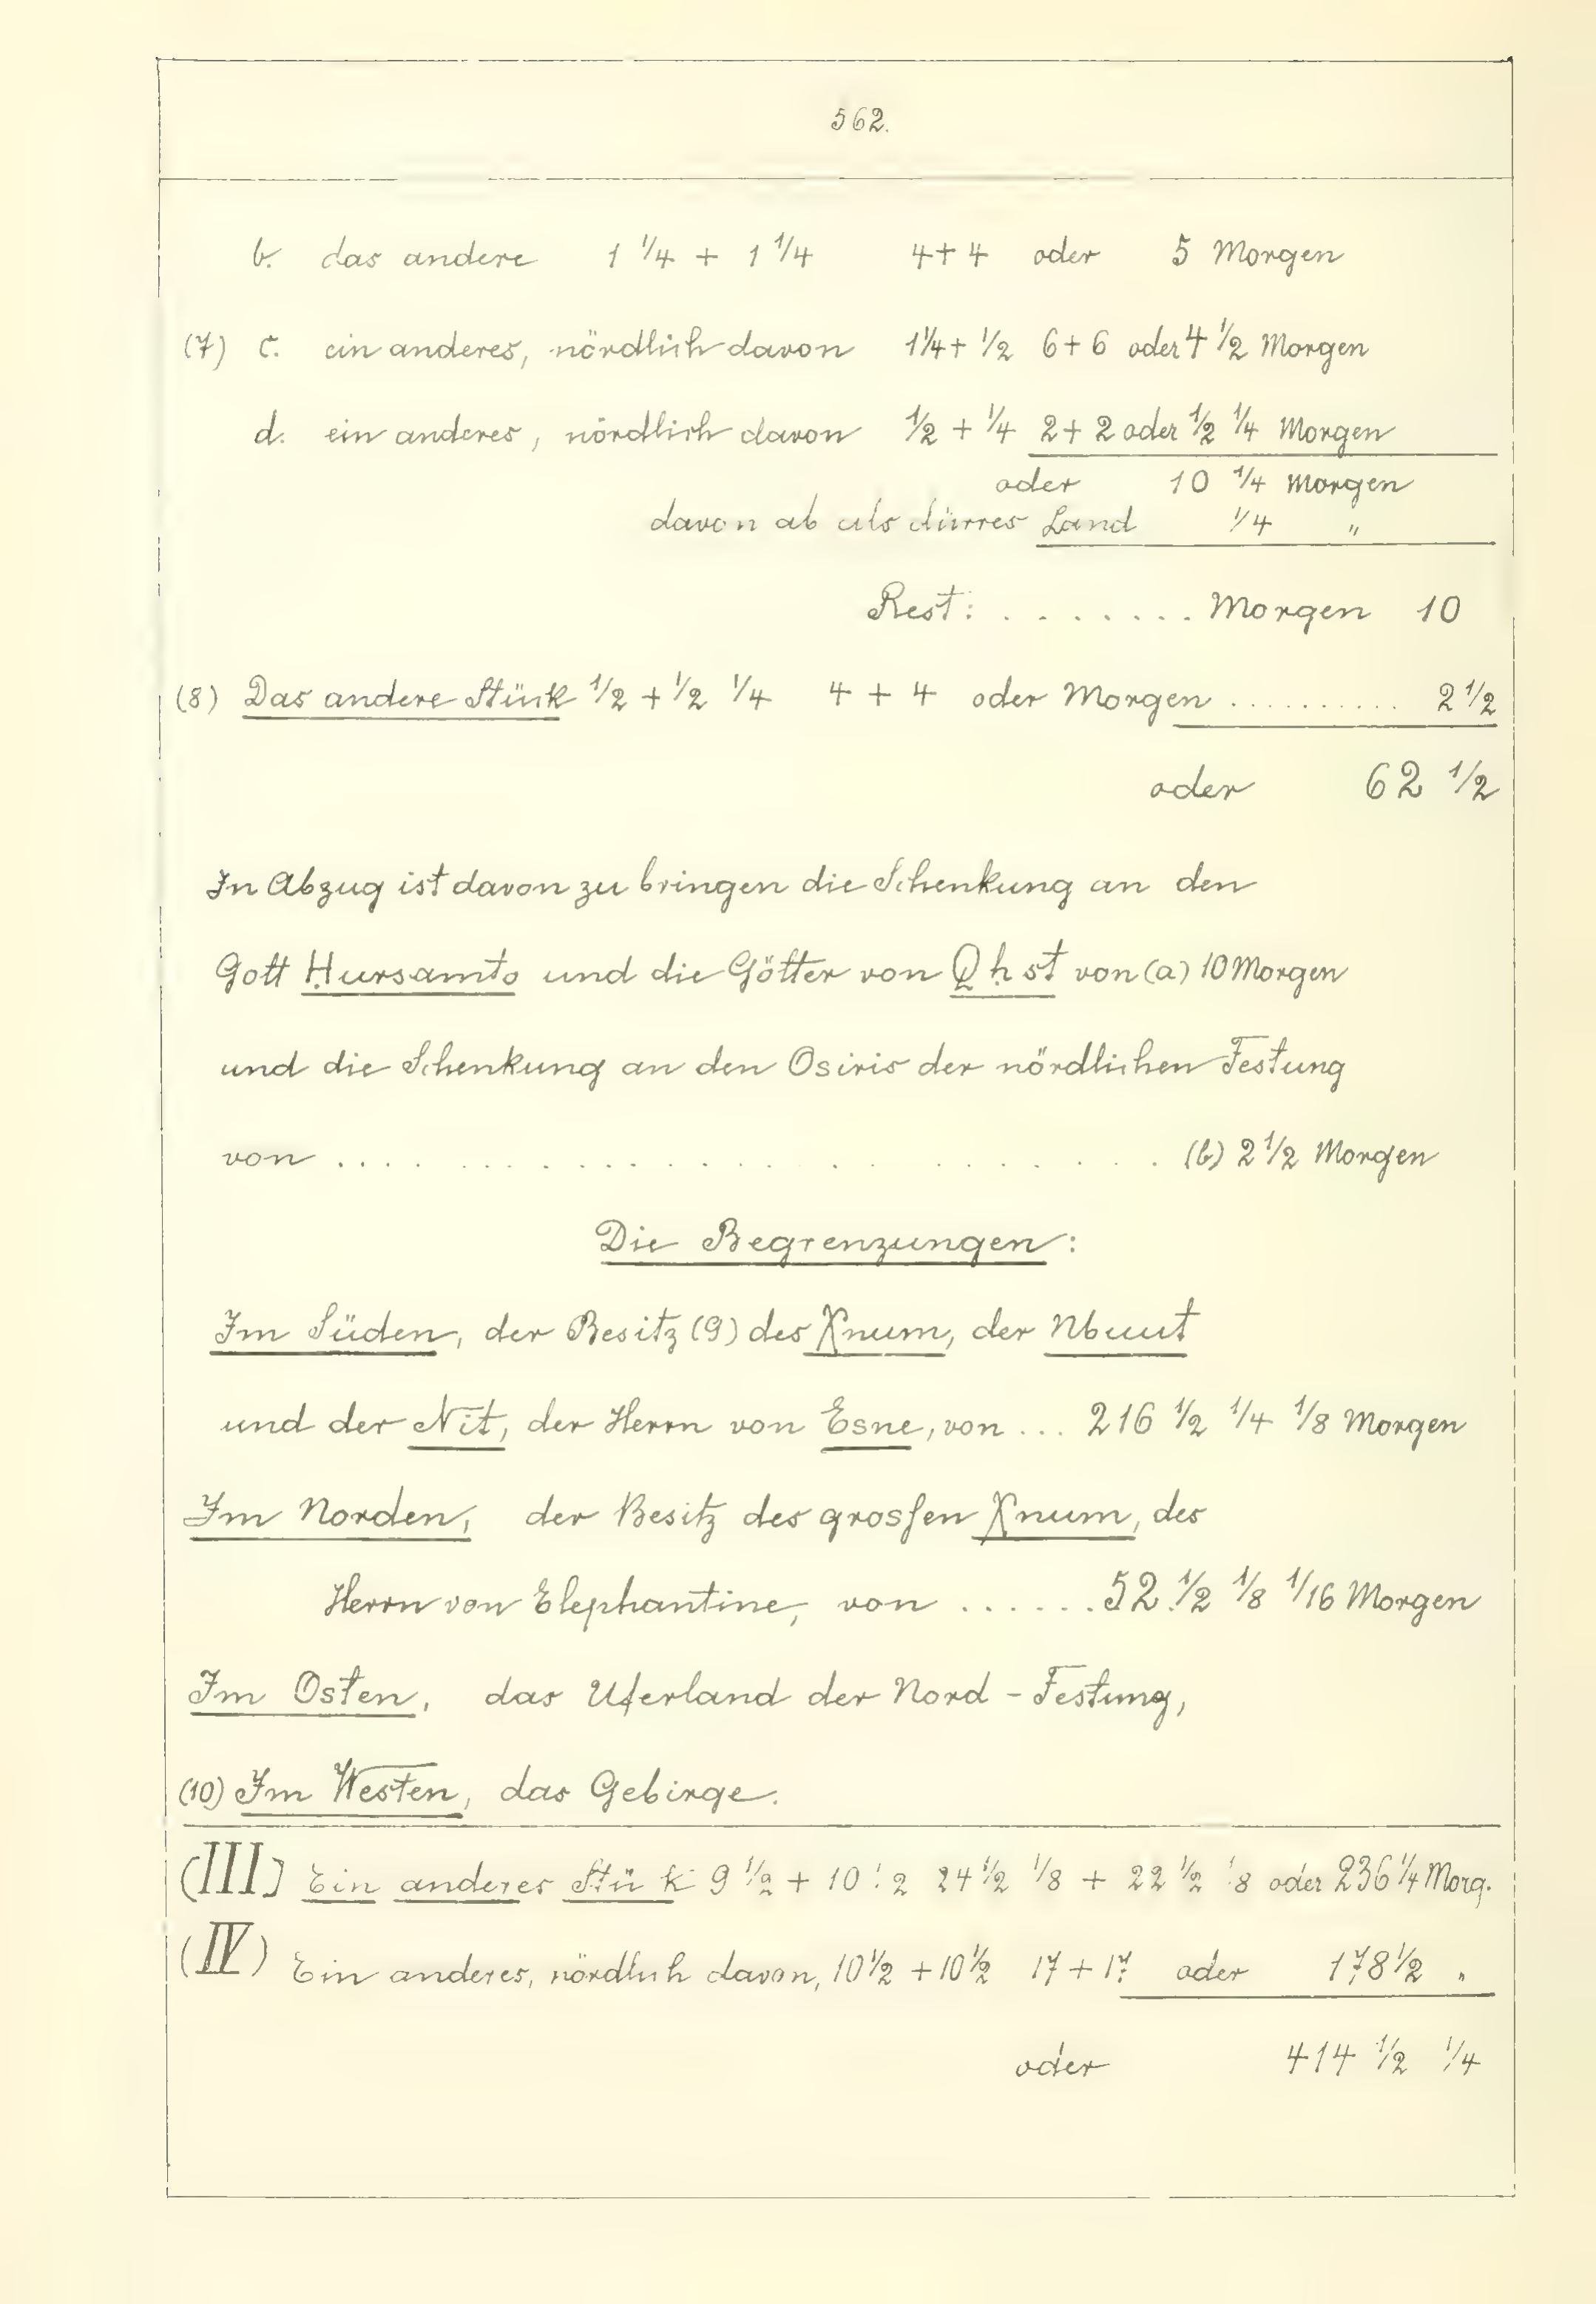 562.
b. das andere 1 1/4 + 1 1/4 4+4 oder 5 Morgen
(7) c. ein anderes, nördlich davon 1 1/4 + 1/2 6+6 oder 4 1/2 Morgen
d. ein anderes, nördlich davon 1/2 + 1/4 2+2 oder 1/2 1/4 Morgen
oder 10 1/4 Morgen
davon ab als dürres Land 1/4 "
Rest: ........ Morgen 10
(8) Das andere Stück 1/2 + 1/2 1/4 4 + 4 oder Morgen .......... 2 1/2
oder 62 1/2
In Abzug ist davon zu bringen die Schenkung an den
Gott Hursamto und die Götter von Qhst von (a) 10 Morgen
und die Schenkung an den Osiris der nördlichen Festung
von .................... (b) 2 1/2 Morgen
Die Begrenzungen:
Im Süden, der Besitz (9) des Xnum, der Nbuut
und der Nit, der Herrn von Esne, von ... 216 1/2 1/4 1/8 Morgen
Im Norden, der Besitz des grossen Xnum, des
Herrn von Elephantine, von ...... 52 1/2 1/8 1/16 Morgen
Im Osten, das Uferland der Nord-Festung,
(10) Im Westen, das Gebirge.
(III) Ein anderes Stück 9 1/2 + 10 1/2 24 1/2 1/8 + 22 1/2 1/8 oder 236 1/4 Morg.
(IV) Ein anderes, nördlich davon, 10 1/2 + 10 1/2 17 + 17 oder 178 1/2 "
oder 414 1/2 1/4